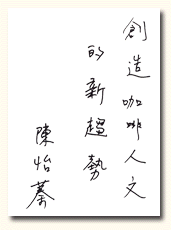 創造咖啡人文
的新趨勢
陳怡蓁